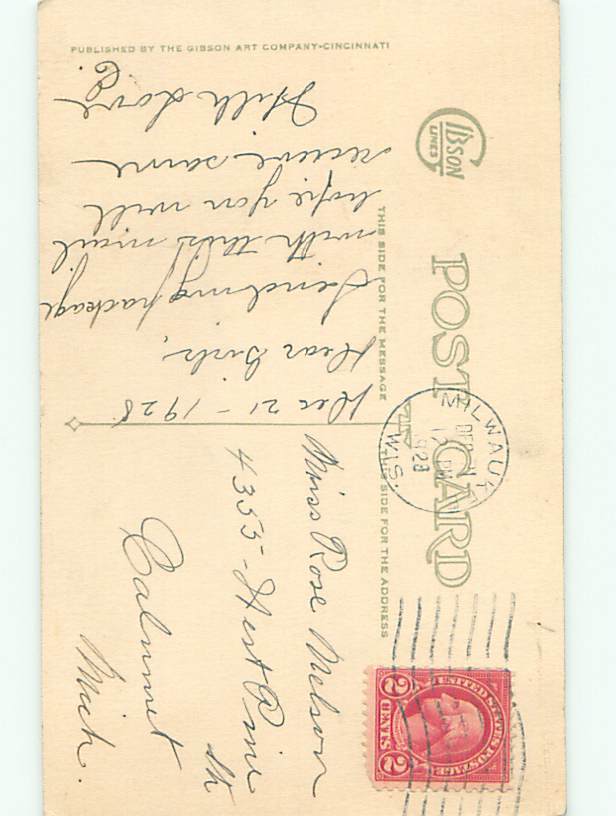 PUBLISHED BY THE GIBSON ART COMPANY-CINCINNATI
GIBSON
LINES
POST CARD
THIS SIDE FOR THE MESSAGE
THIS SIDE FOR THE ADDRESS
MILWAUKEE
DEC 21
12 PM
1928
WIS.
UNITED STATES POSTAGE
2 CENTS 2
Dec 21 - 1928
Dear Girls,
Sending package
with this mail
hope you will
receive same
With Love
C.
Miss Rose Melson
4355 - Hest Pine
St
Calumet
Mich.